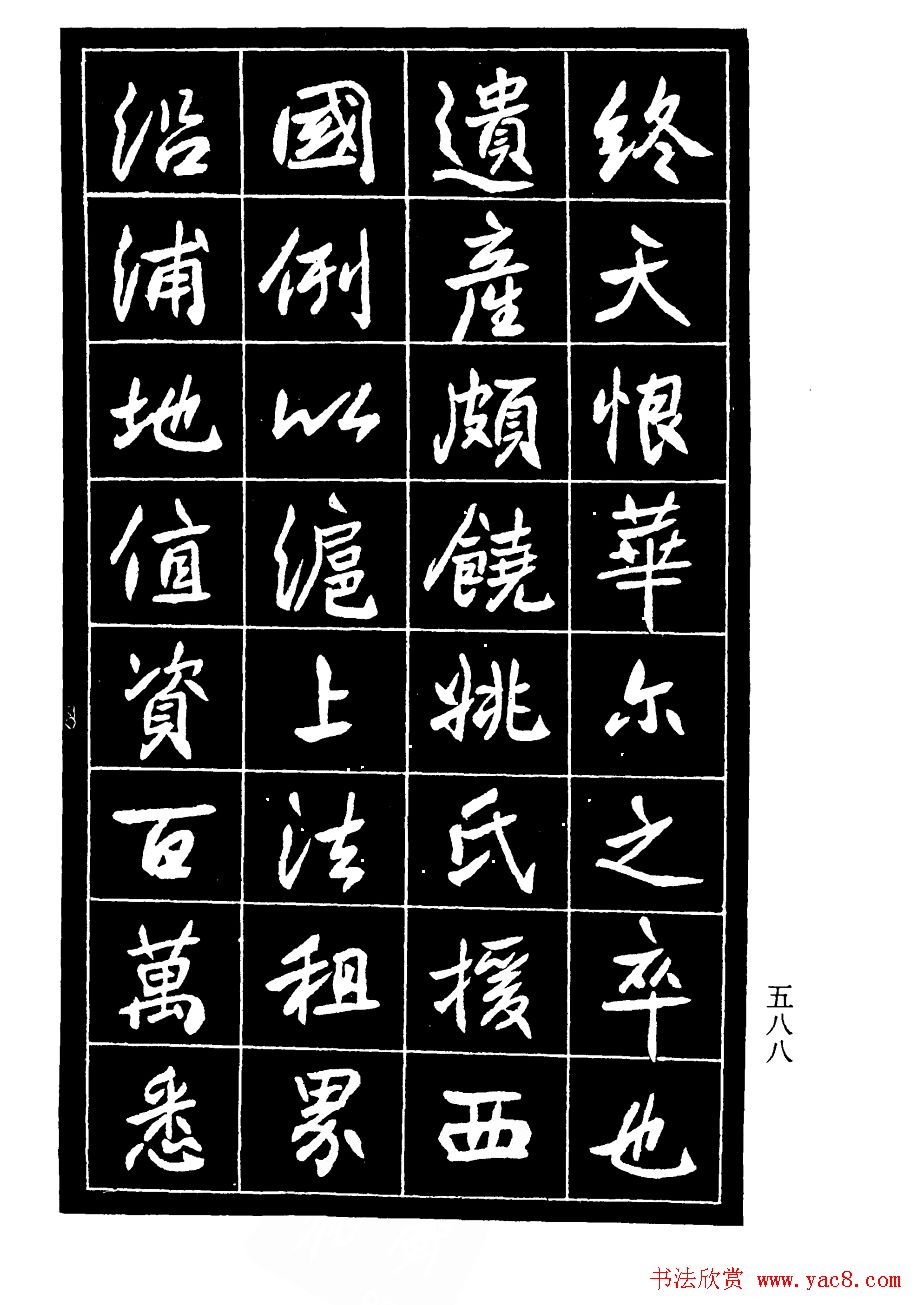 終天恨華尔之卒也
遺產頗饒姚氏援西
國例以滬上法租界
沿浦地值資百萬悉
五八八
书法欣赏 www.yac8.com